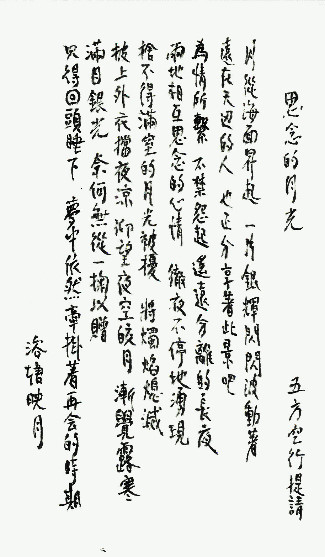 思念的月光
五方空行提請
月從海面昇起 一片銀輝閃閃波動著
遠在天边的人 也正分享著此景吧
為情所繫 不禁怨起 遙遠分離的長夜
兩地相互思念的心情 徹夜不停地湧現
捨不得滿空的月光被擾 將燭焰熄滅
披上外衣擋夜涼 仰望夜空皎月 漸覺露寒
滿目銀光 奈何無從一掬以贈
只得回頭睡下 夢中依然牽掛著再会的時期
洛塘映月